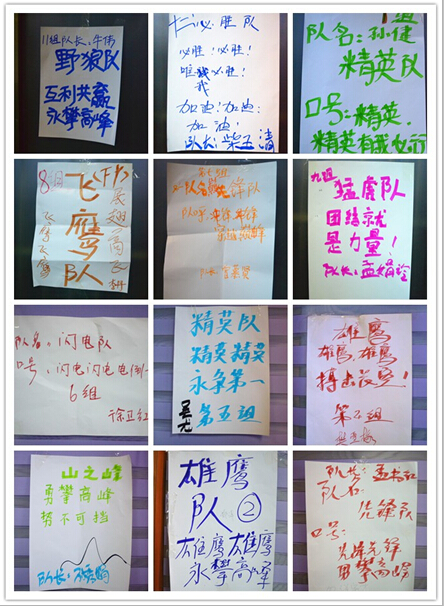 11组队长:牛伟
野狼队
互利共赢
永攀高峰
必胜队
必胜!必胜!
唯我必胜!
我
加油!加油!
加油!
队长:柴玉清
组
队名:孙健
精英队
口号:精英.
精英有我也行
8组
飞鹰队
展翅高飞
飞鹰飞鹰
先锋队
九组
猛虎队
团结就
是力量!
队长:孟
队名:闪电队
口号:闪电闪电电倒一切
6组
徐卫红
精英队
精英精英
永争第一
第五组
雄鹰
雄鹰,雄鹰
搏击长空!
第 组
山之峰
勇攀高峰
势不可挡
队长:
雄鹰
队②
雄鹰雄鹰
永攀高峰
队长:孟
队名:
先锋队
口号:
先锋先锋
勇攀高峰